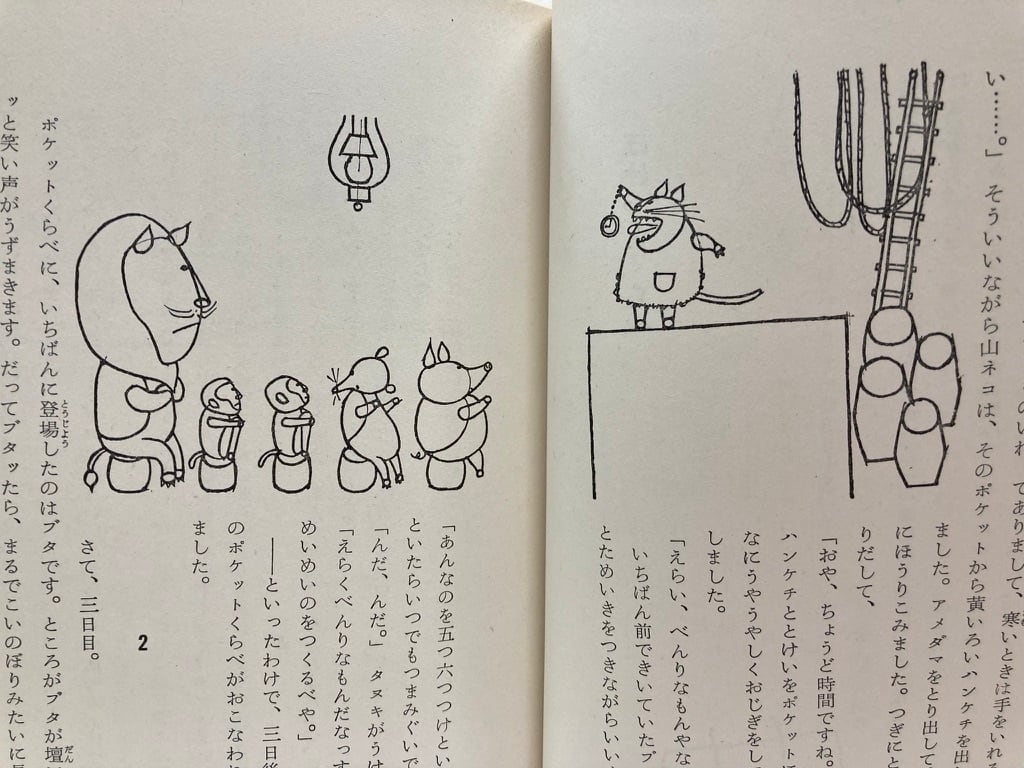 のいれ　てありまして、寒いときは手をいれる
い……。」　そういいながら山ネコは、そのポケットから黄いろいハンケチを出
ました。アメダマをとり出して
にほうりこみました。つぎにと
りだして、
「おや、ちょうど時間ですね。
ハンケチととけいをポケットに
なにうやうやしくおじぎをし
しました。
「えらい、べんりなもんやな
いちばん前できいていたブ
とためいきをつきながらいい
「あんなのを五つ六つつけとい
といたらいつでもつまみぐいで
「んだ、んだ。」タヌキがうけ
「えらくべんりなもんだなっす
めいめいのをつくるべや。」
――といったわけで、三日後
のポケットくらべがおこなわれ
ました。
2
さて、三日目。
ポケットくらべに、いちばんに登場したのはブタです。ところがブタが壇
とうじよう
だん
ッと笑い声がうずまきます。だってブタッたら、まるでこいのぼりみたいに